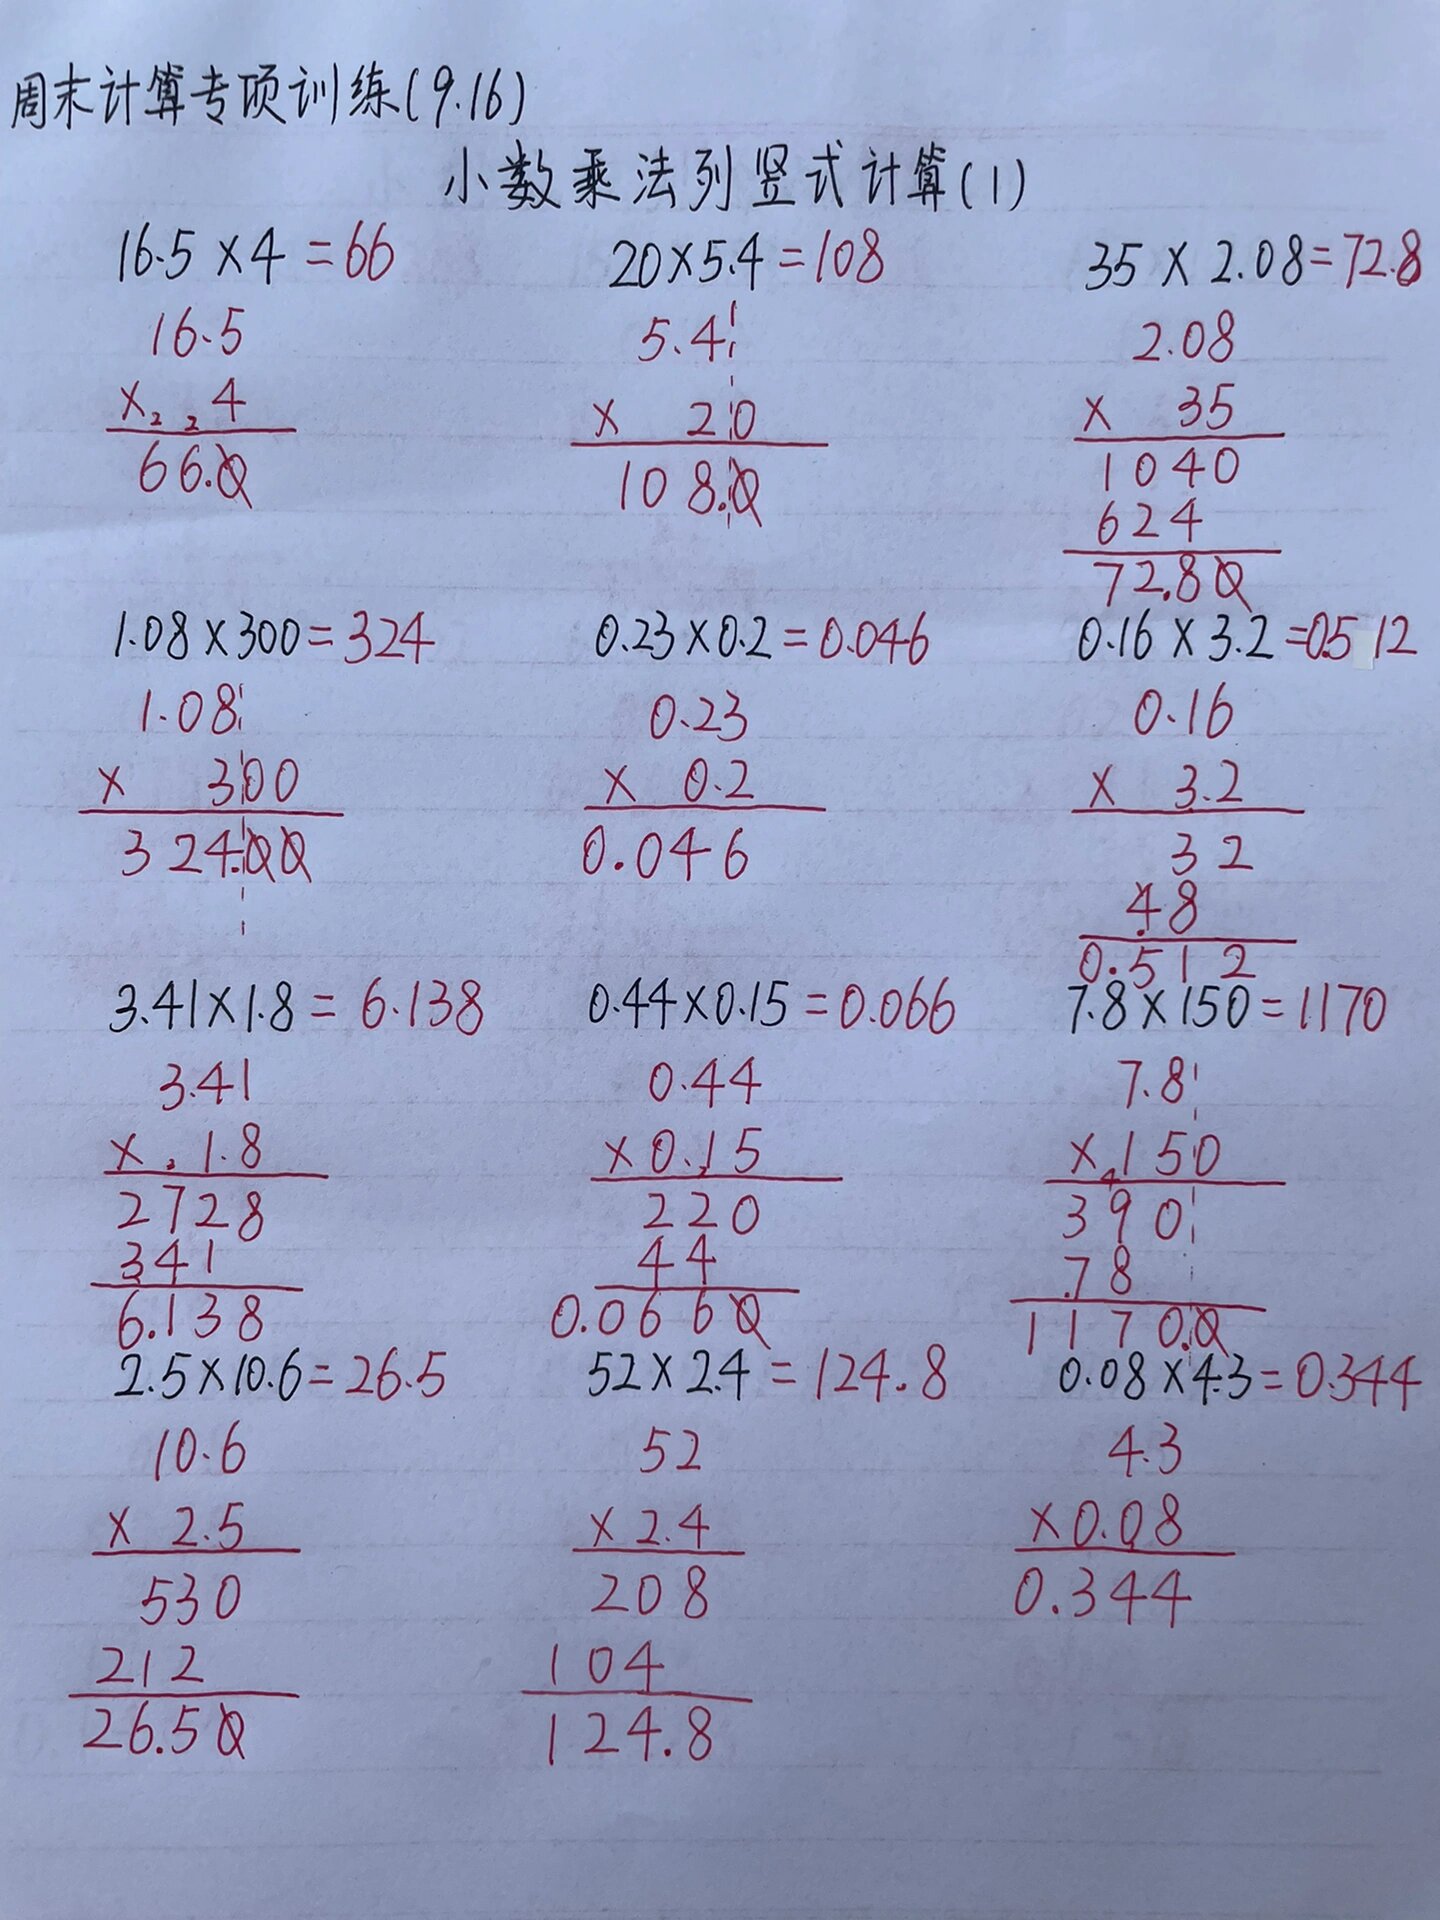 周末计算专项训练(9.16)
小数乘法列竖式计算(1)
16.5×4=66 20×5.4=108 35×2.08=72.8
16.5 5.4 2.08
×224 × 20 × 35
66.0 108.0 1040
624
72.80
1.08×300=324 0.23×0.2=0.046 0.16×3.2=0.512
1.08 0.23 0.16
× 300 × 0.2 × 3.2
324.00 0.046 32
48
0.512
3.41×1.8=6.138 0.44×0.15=0.066 7.8×150=1170
3.41 0.44 7.8
×31.8 ×0.125 ×4150
2728 220 390
341 44 78
6.138 0.0660 1170.0
2.5×10.6=26.5 52×2.4=124.8 0.08×4.3=0.344
10.6 52 4.3
× 2.5 ×2.4 ×0.08
530 208 0.344
212 104
26.50 124.8